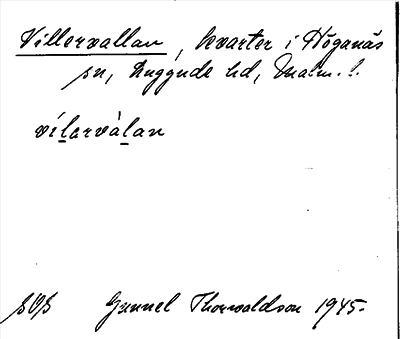 Villervallan, kvarter i Höganäs
sn, Luggude hd, Malm. l.
vílarvàlan
SOS Gunnel Thorvaldson 1945.